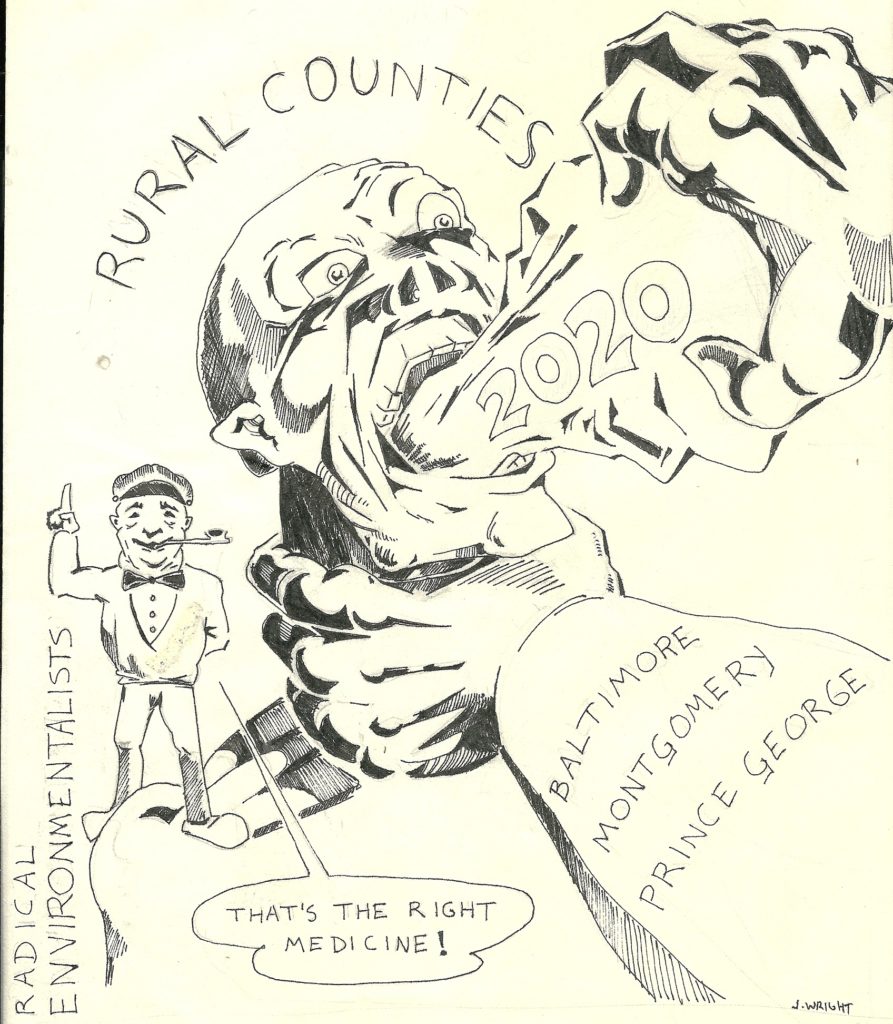 RURAL COUNTIES
2020
RADICAL
ENVIRONMENTALISTS
BALTIMORE
MONTGOMERY
PRINCE GEORGE
THAT'S THE RIGHT
MEDICINE!
J. WRIGHT